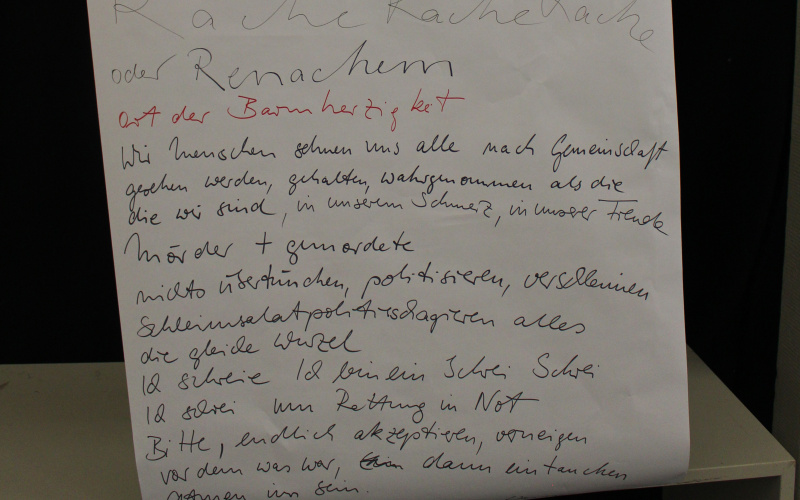 Rache Rache Rache
oder
Ort der Barmherzigkeit
Wir Menschen sehnen uns alle nach Gemeinschaft
gesehen werden, gehalten, wahrgenommen als die
die wir sind, in unserem Schmerz, in unserer Freude
Mörder + gemordete
nichts übertünchen, politisieren, verschleimen
alles
die gleiche Wurzel
Ich schreie Ich bin ein Schrei Schrei
Ich schrei um Rettung in Not
Bitte, endlich akzeptieren, verneigen
vor dem was war, dann eintauchen
im sein.